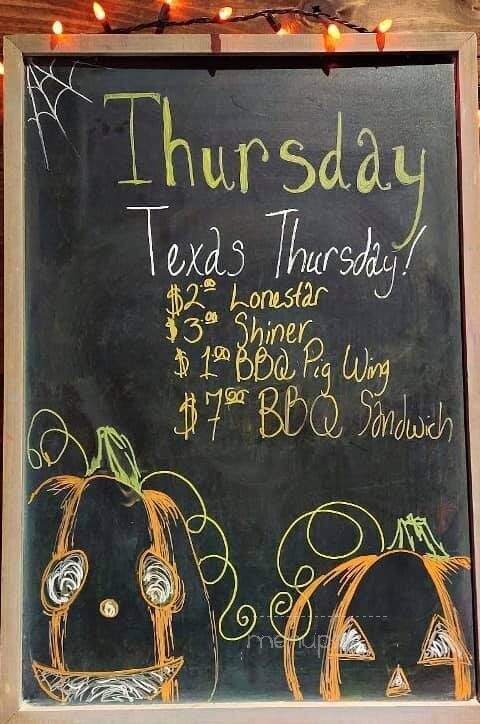 Thursday
Texas Thursday!
$2.00 Lonestar
$3.00 Shiner
$1.00 BBQ Pig Wing
$7.00 BBQ Sandwich